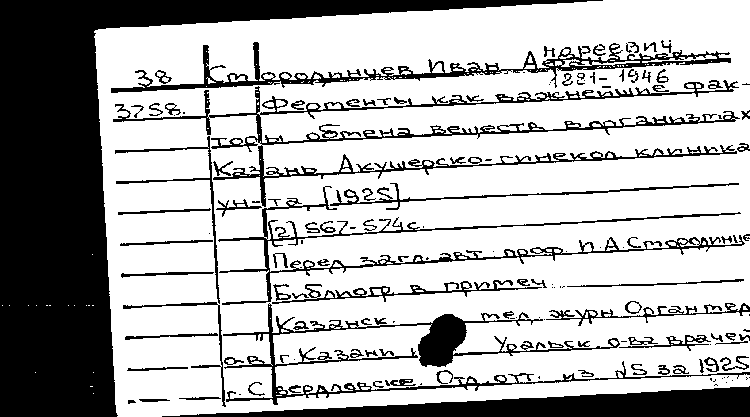 ндреевич
38 Стородинцев, Иван Афанасьевич
1881-1946
3758. Ферменты как важнейшие фак-
торы обмена веществ в организмах
Казань, Акушерско-гинекол. клиника
ун-та, [1925].
[2], 567-574 с.
Перед загл. авт: проф. И.А. Стородинце
Библиогр в примеч
Казанск. мед. журн Орган мед.
о-в г. Казани и Уральск. о-ва врачей
г. Свердловске. Отд. отт. из №5 за 1925